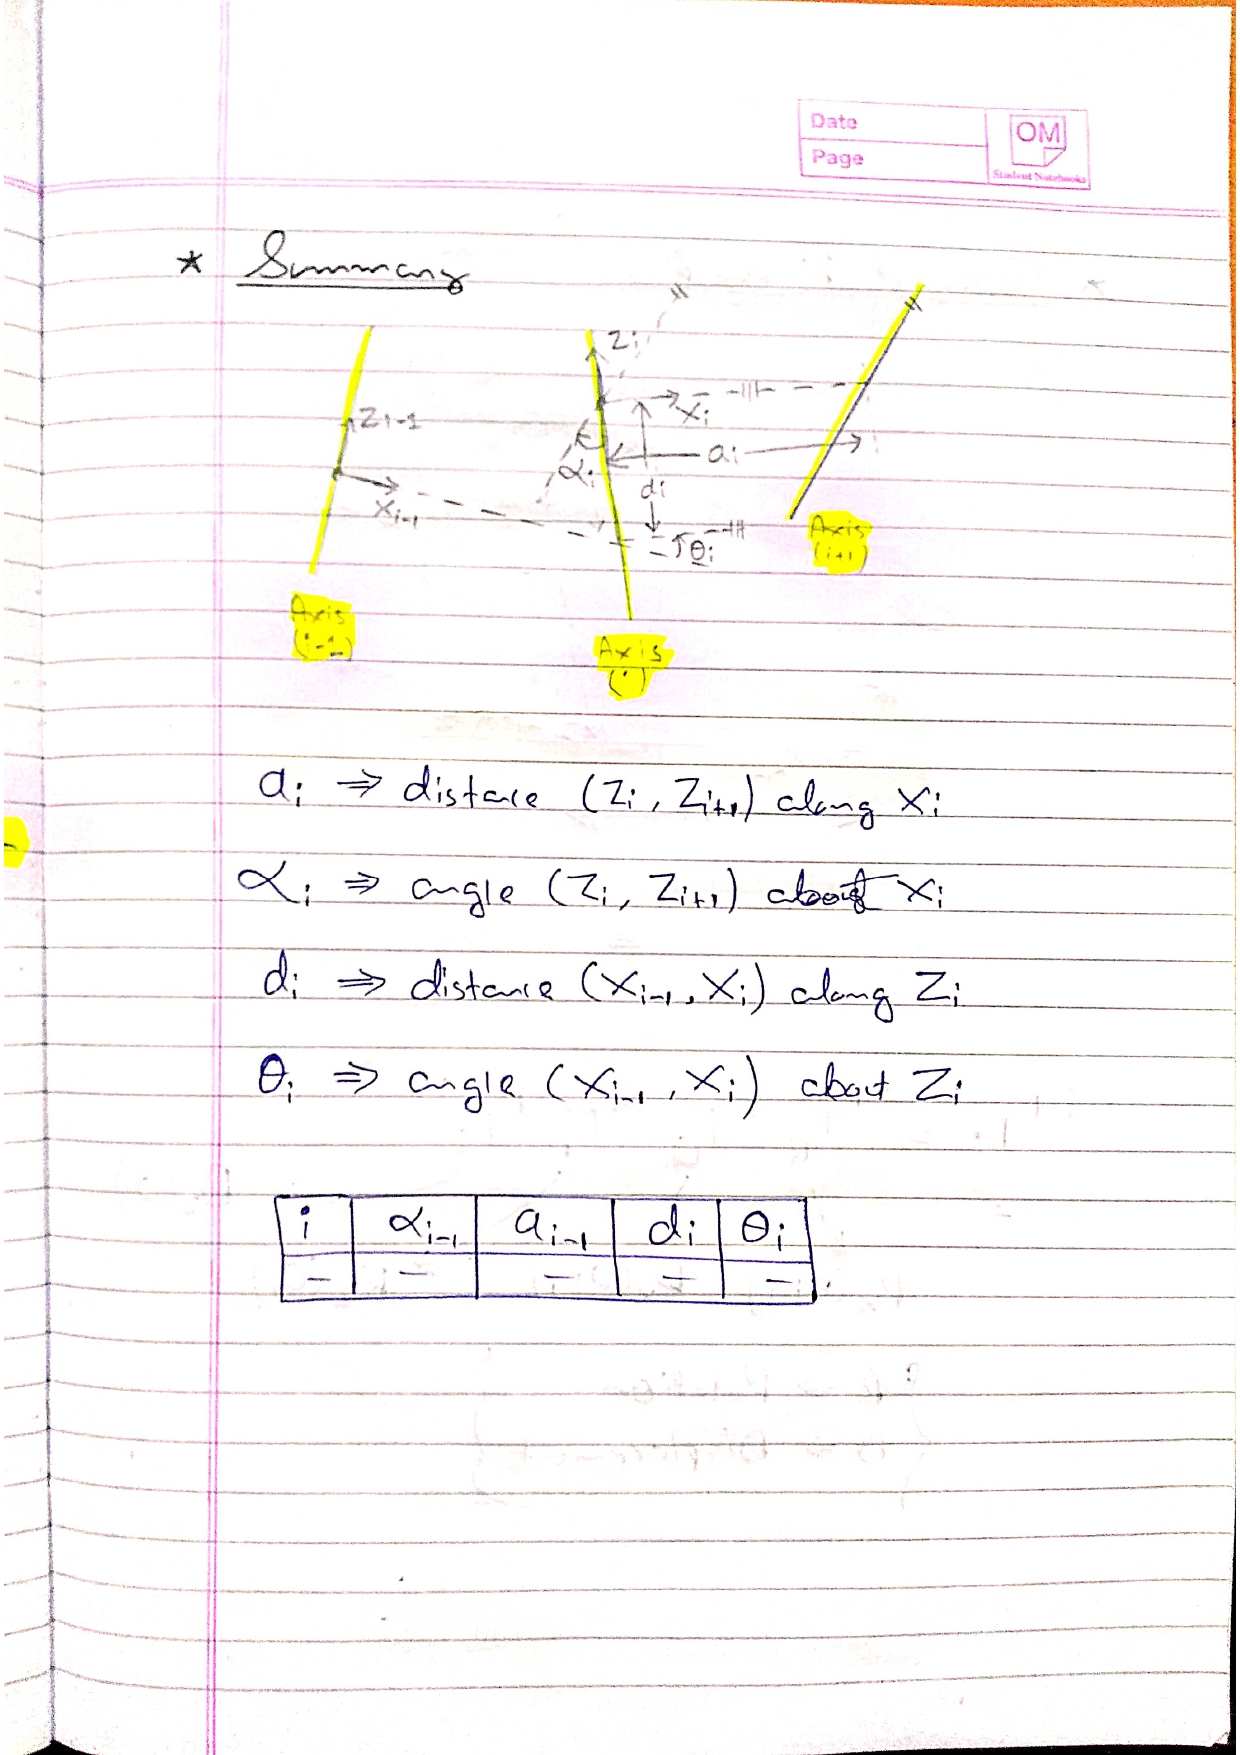 Date
OM
Page
Student Notebooks
* Summary
Zi
Xi
Zi-1
ai
αi
di
Xi-1
θi
Axis
(i+1)
Axis
(i-1)
Axis
(i)
ai ⇒ distance (Zi, Zi+1) along Xi
αi ⇒ angle (Zi, Zi+1) about Xi
di ⇒ distance (Xi-1, Xi) along Zi
θi ⇒ angle (Xi-1, Xi) about Zi
i αi-1 ai-1 di θi
- - - - -